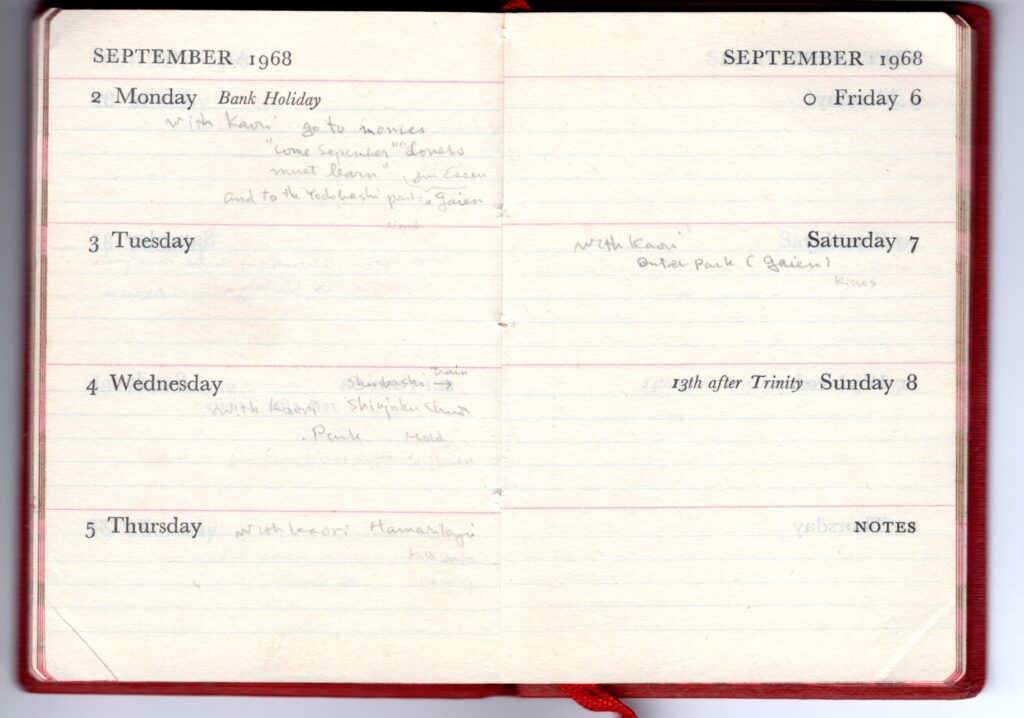 SEPTEMBER 1968
2 Monday Bank Holiday
with Kaori go to movies
"Come September" "Lovers
must learn"
and to the Yodobashi park Gaien
Hand
3 Tuesday
4 Wednesday
Shinbashi train →
with Kaori Shinjuku
Park Hold
5 Thursday with Kaori
SEPTEMBER 1968
Friday 6
with Kaori Saturday 7
outer park (Gaien)
Kisses
13th after Trinity Sunday 8
NOTES